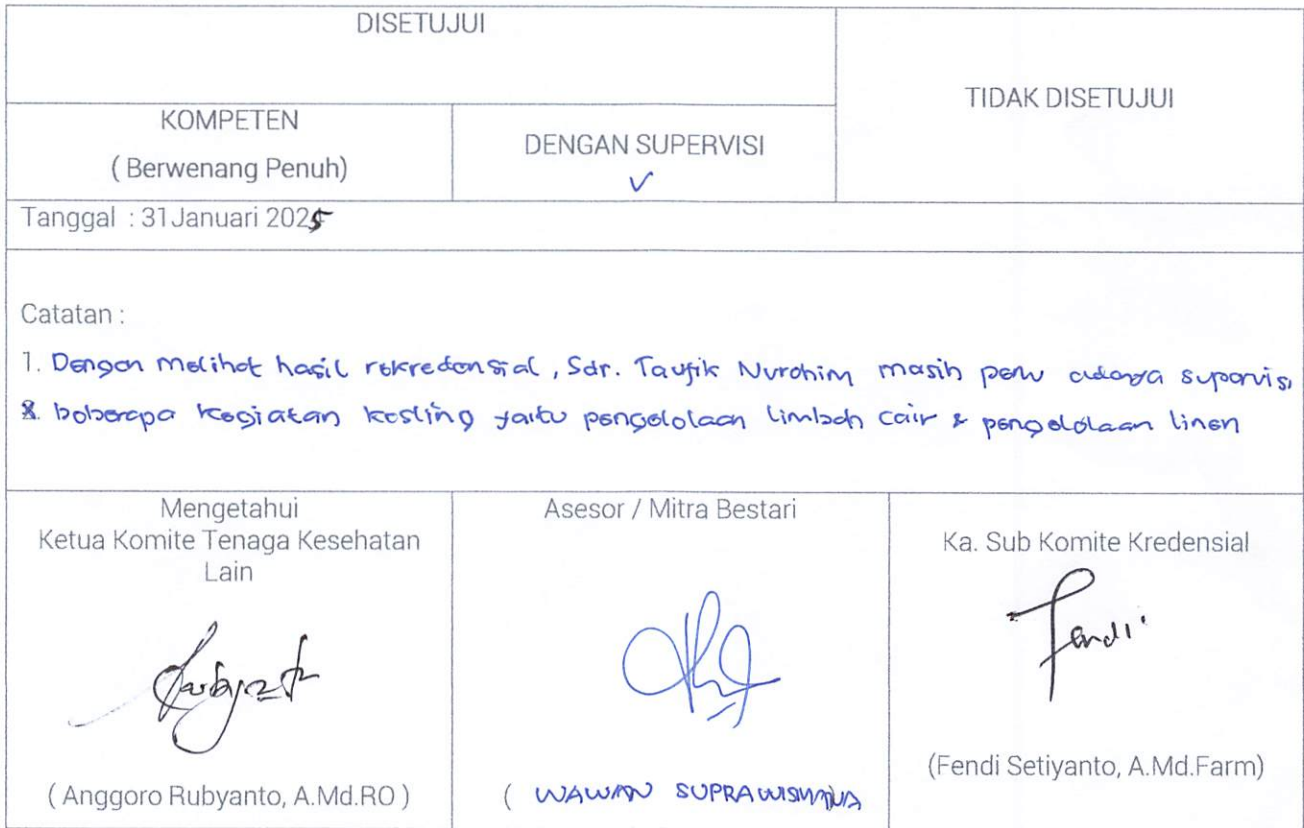 DISETUJUI
TIDAK DISETUJUI
KOMPETEN
( Berwenang Penuh)
DENGAN SUPERVISI
✓
Tanggal : 31 Januari 2025
Catatan :
1. Dengan melihat hasil rekredensial, Sdr. Taufik Nurohim masih perlu adanya supervisi
beberapa kegiatan kesling yaitu pengelolaan limbah cair & pengelolaan linen
Mengetahui
Ketua Komite Tenaga Kesehatan
Lain
( Anggoro Rubyanto, A.Md.RO )
Asesor / Mitra Bestari
( WAWAN
Ka. Sub Komite Kredensial
Fendi
(Fendi Setiyanto, A.Md.Farm)